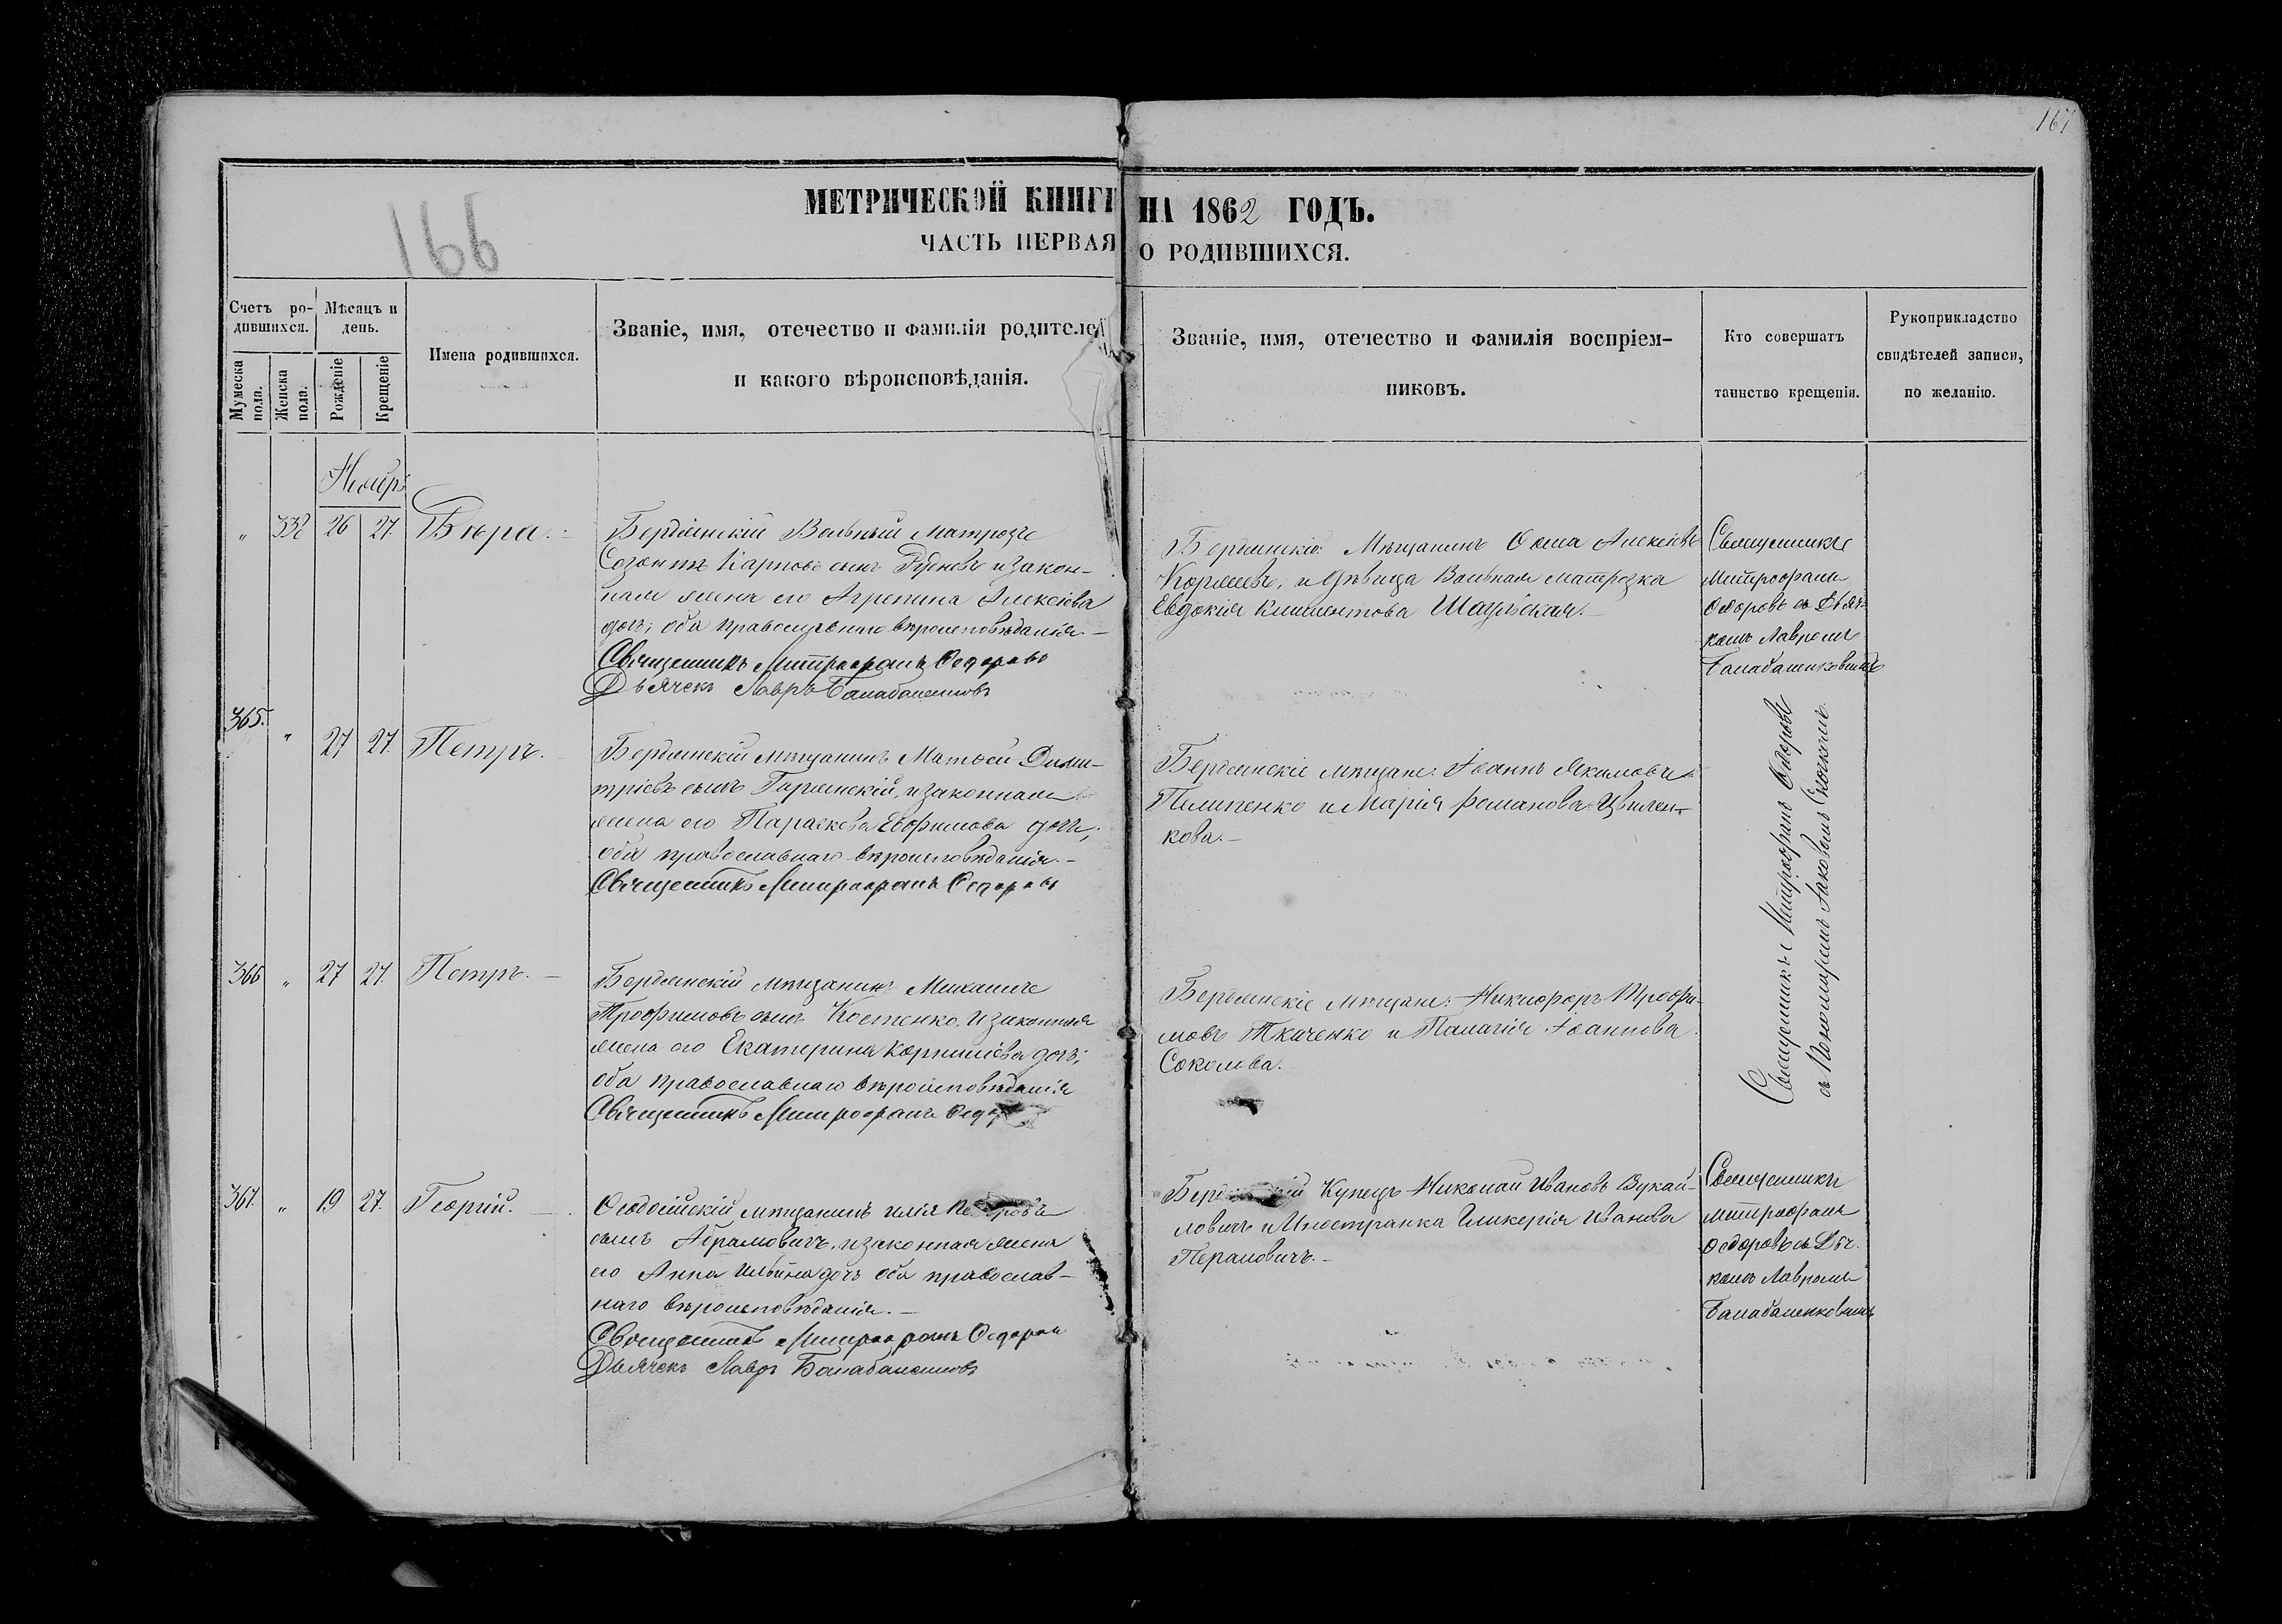 167
166
МЕТРИЧЕСКОЙ КНИГИ НА 1862 ГОДЪ.
ЧАСТЬ ПЕРВАЯ О РОДИВШИХСЯ.
Счетъ ро-
дившихся.
Мужеска пола.
Женска пола.
Мѣсяцъ и
день.
Рожденіе
Крещеніе
Имена родившихся.
Званіе, имя, отечество и фамилія родителей
и какого вѣроисповѣданія.
Званіе, имя, отечество и фамилія воспріем-
никовъ.
Кто совершатъ
таинство крещенія.
Рукоприкладство
свидѣтелей записи,
по желанію.
Ноябрь
" 332 26 27. Вѣра.
Бердянскій Вольный Матрозъ
Созонтъ Карповъ сынъ и закон-
ная жена его Агрепина Алексіева
дочь; оба православнаго вѣроисповѣданія.
Священникъ Митрофанъ Ѳедоровъ
Дьячекъ Лавръ Балабаненковъ
Бердянскіе: Мѣщанинъ Ѳома Алексіевъ
и Дѣвица Вольная матрозка
Евдокія Климентова
Священникъ
Митрофанъ
Ѳедоровъ съ Дьяч-
комъ Лавромъ
Балабаненковымъ
365. " 27 27. Петръ.
Бердянскій мѣщанинъ Матѳей Дими-
тріевъ сынъ и законная
жена его Параскева Евфимова дочь;
оба православнаго вѣроисповѣданія.
Священникъ Митрофанъ Ѳедоровъ
Бердянскіе мѣщане: Іоаннъ Якимовъ
Пелипенко и Марія Романова Цвилен-
кова.
Священникъ Митрофанъ Ѳедоровъ
съ Пономаремъ Іаковомъ
366 " 27 27. Петръ.
Бердянскій мѣщанинъ Михаилъ
Трофимовъ сынъ Костенко, и законная
жена его Екатерина Корниліева дочь;
оба православнаго вѣроисповѣданія
Священникъ Митрофанъ
Бердянскіе мѣщане: Никифоръ Трофи-
мовъ Ткаченко и Палагія Іоаннова
Соколова.
367. " 19 27. Георгій.
Ѳеодосійскій мѣщанинъ Илія
сынъ Абрамовичъ, и законная жена
его Анна Ильина дочь оба православ-
наго вѣроисповѣданія.
Священникъ Митрофанъ Ѳедоровъ
Дьячекъ Лавръ Балабаненковъ
Купецъ Николай Ивановъ Вукай-
ловичъ и Иностранка Гликерія Иванова
Перановичъ.
Священникъ
Митрофанъ
Ѳедоровъ съ Дьяч-
комъ Лавромъ
Балабаненковымъ